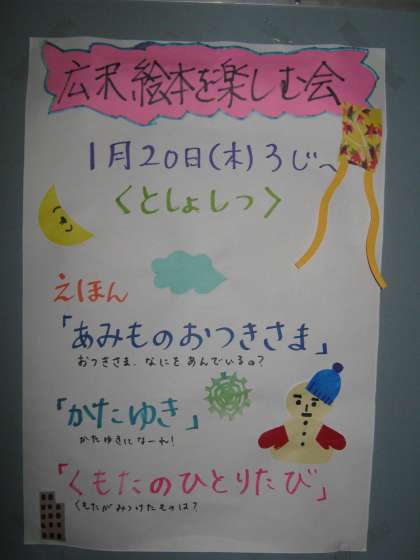 広沢絵本を楽しむ会
1月20日(木)3じ〜
〈としょしつ〉
えほん
「あみものおつきさま」
おつきさま、なにをあんでいるの?
「かたゆき」
かたゆきになーれ!
「くもたのひとりたび」
くもたがみつけたものは?